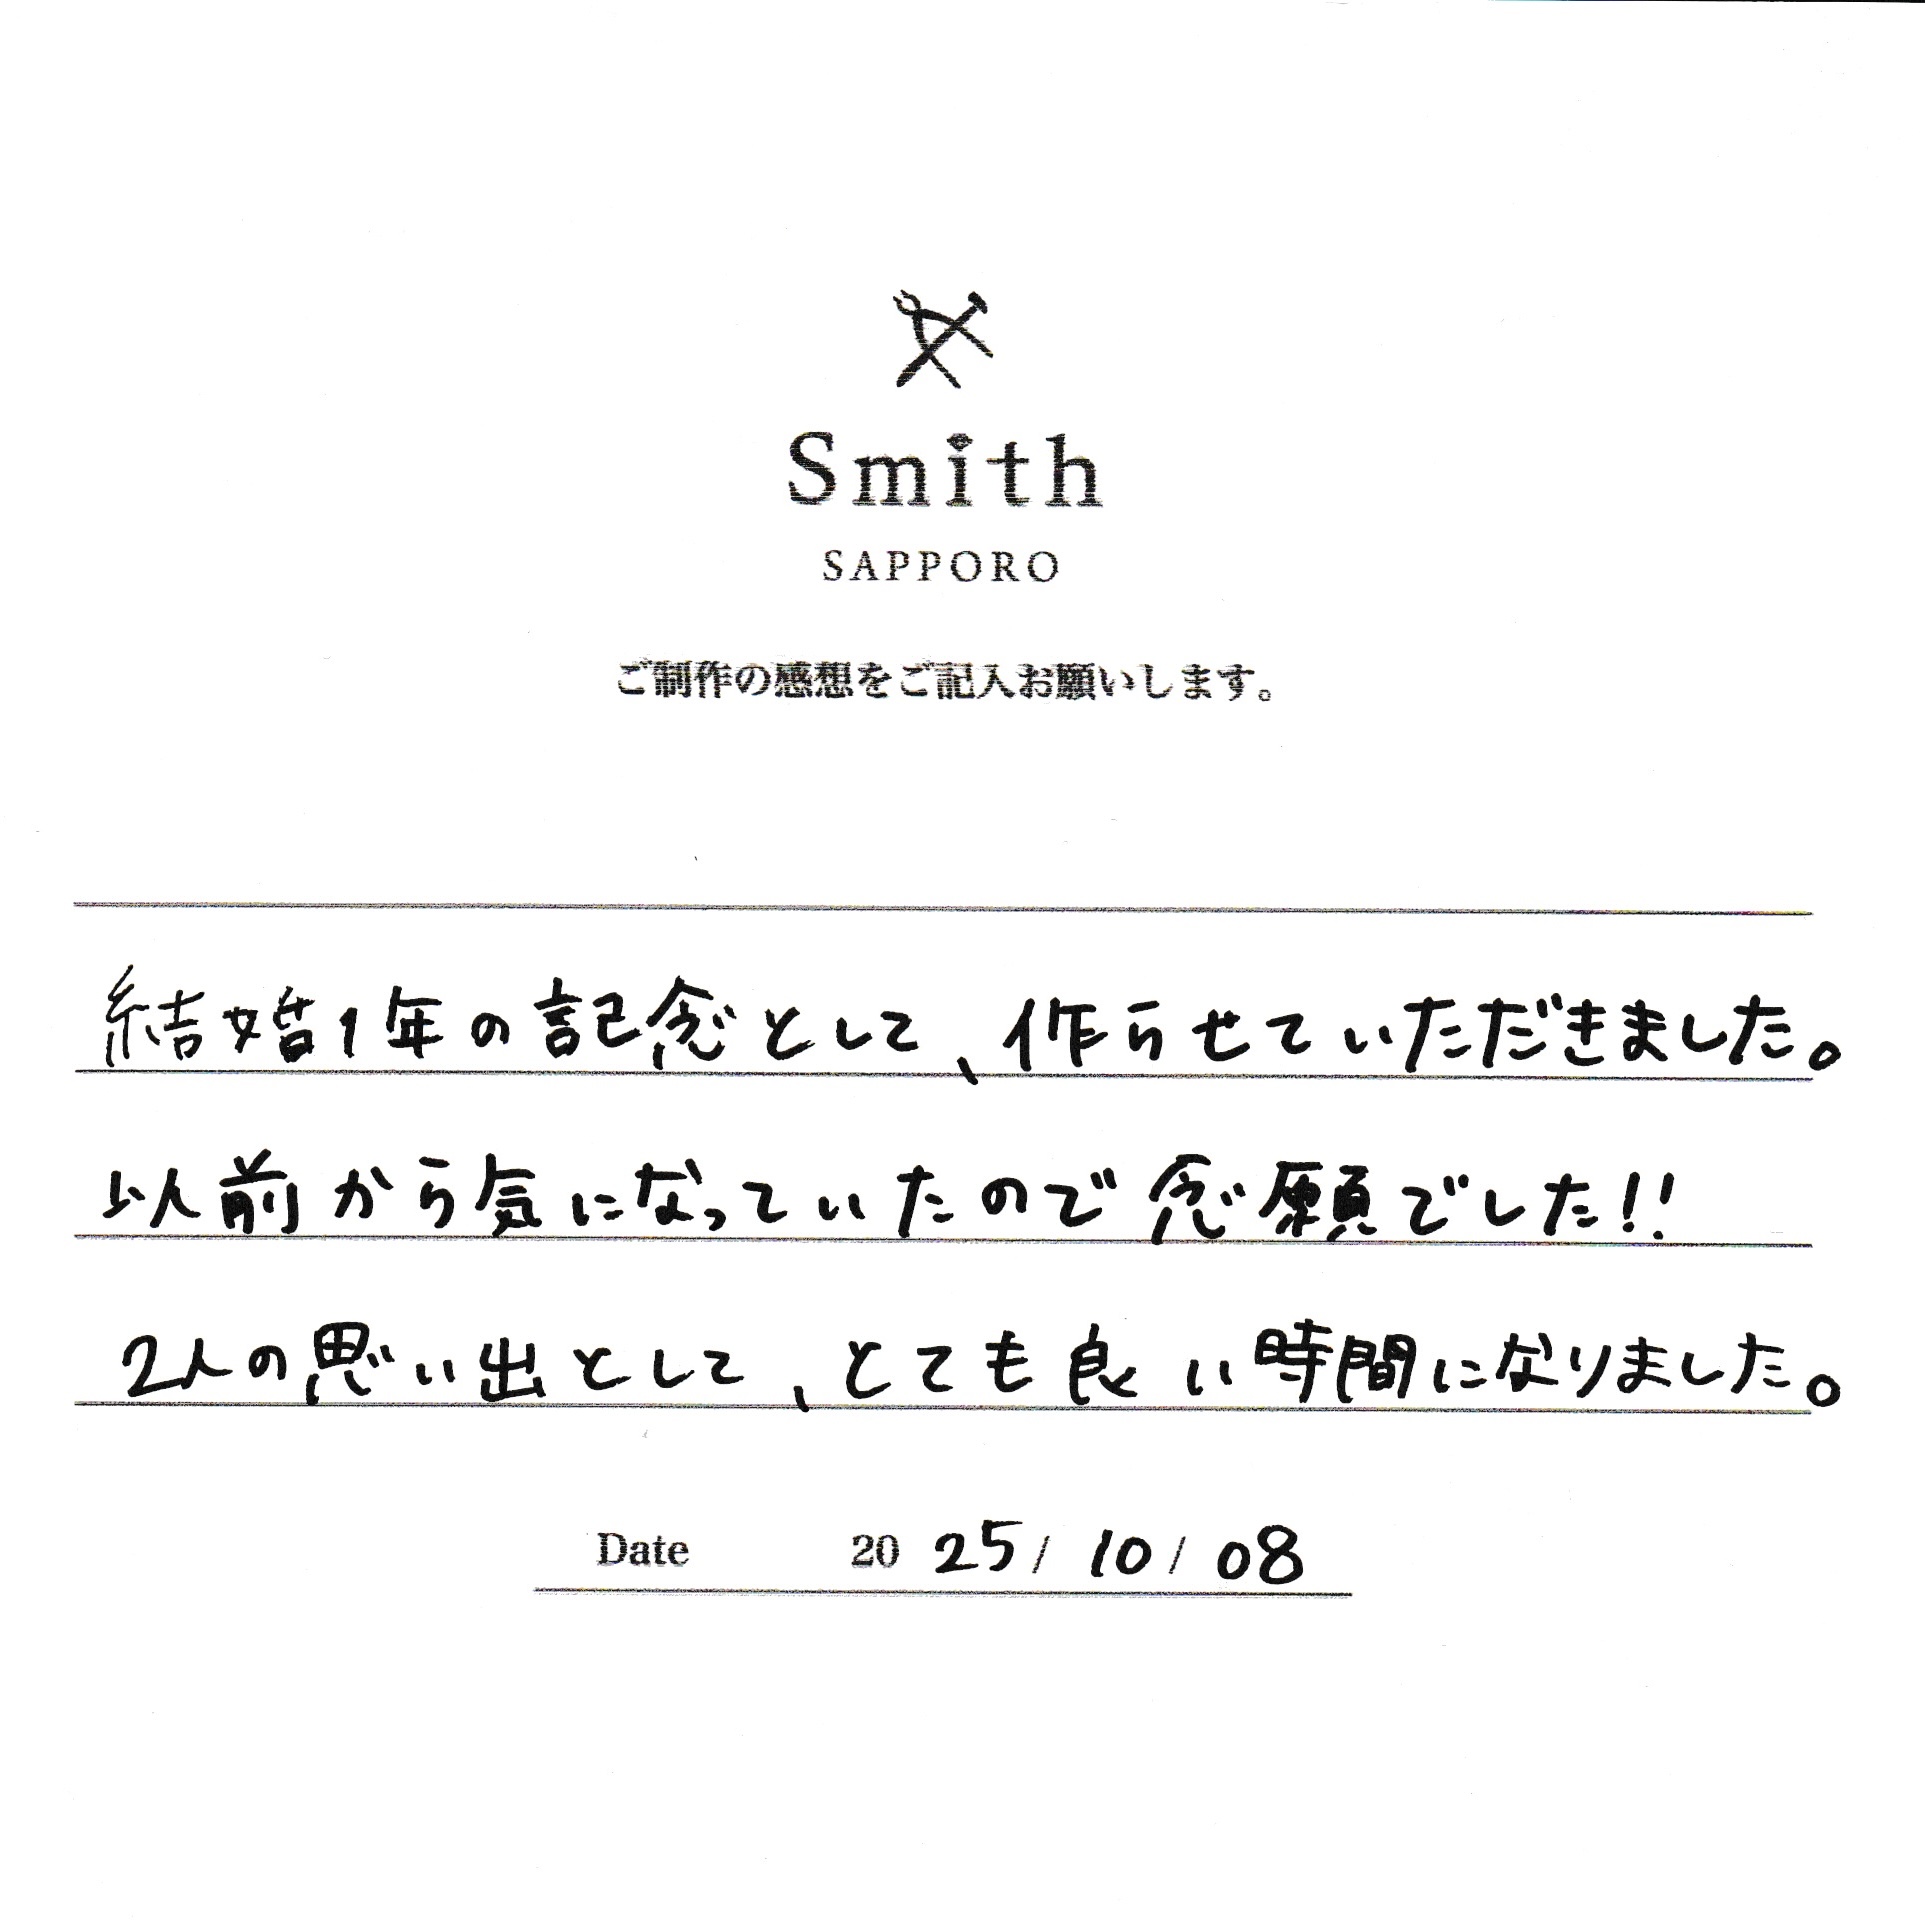 Smith
SAPPORO
ご制作の感想をご記入お願いします。
結婚1年の記念として、作らせていただきました。
以前から気になっていたので念願でした!!
2人の思い出として、とても良い時間になりました。
Date 2025/10/08